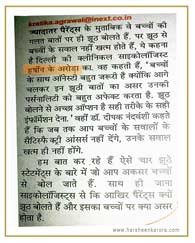 kratika.agrawal@inext.co.in
ज्यादातर पैरेंट्स के मुताबिक वे बच्चों की
गलत बातों पर ही झूठ बोलते हैं. पर झूठ से
बच्चों के सवाल नहीं खत्म होते हैं, ये कहना
है दिल्ली की क्लीनिकल साइकोलॉजिस्ट
हर्षीन के अरोड़ा का. वह कहती हैं, 'बच्चों
के साथ ऑनेस्टी बहुत जरूरी है क्योंकि आगे
चलकर इन झूठी बातों का असर उनकी
पर्सनालिटी को बहुत अफेक्ट करता है. झूठ
बोलने से अच्छा ऑप्शन है सही तरीके से सही
इंफॉर्मेशन देना. 'वहीं डॉ. दीपक नंदवंशी कहते
हैं कि जब तक आप बच्चों के सवालों के
सैटिस्फैक्ट्री आंसर्स नहीं देंगे, उनके सवाल
खत्म ही नहीं होंगे.
हम बात कर रहे हैं ऐसे चार झूठे
स्टेटमेंट्स के बारे में जो आप अकसर बच्चों
से बोल जाते हैं. साथ ही जाना
साइकोलॉजिस्ट्स से कि आखिर पैरेंट्स क्यों
झूठ बोलते हैं और इसका बच्चों पर क्या असर
होता है.
www.harsheenkarora.com